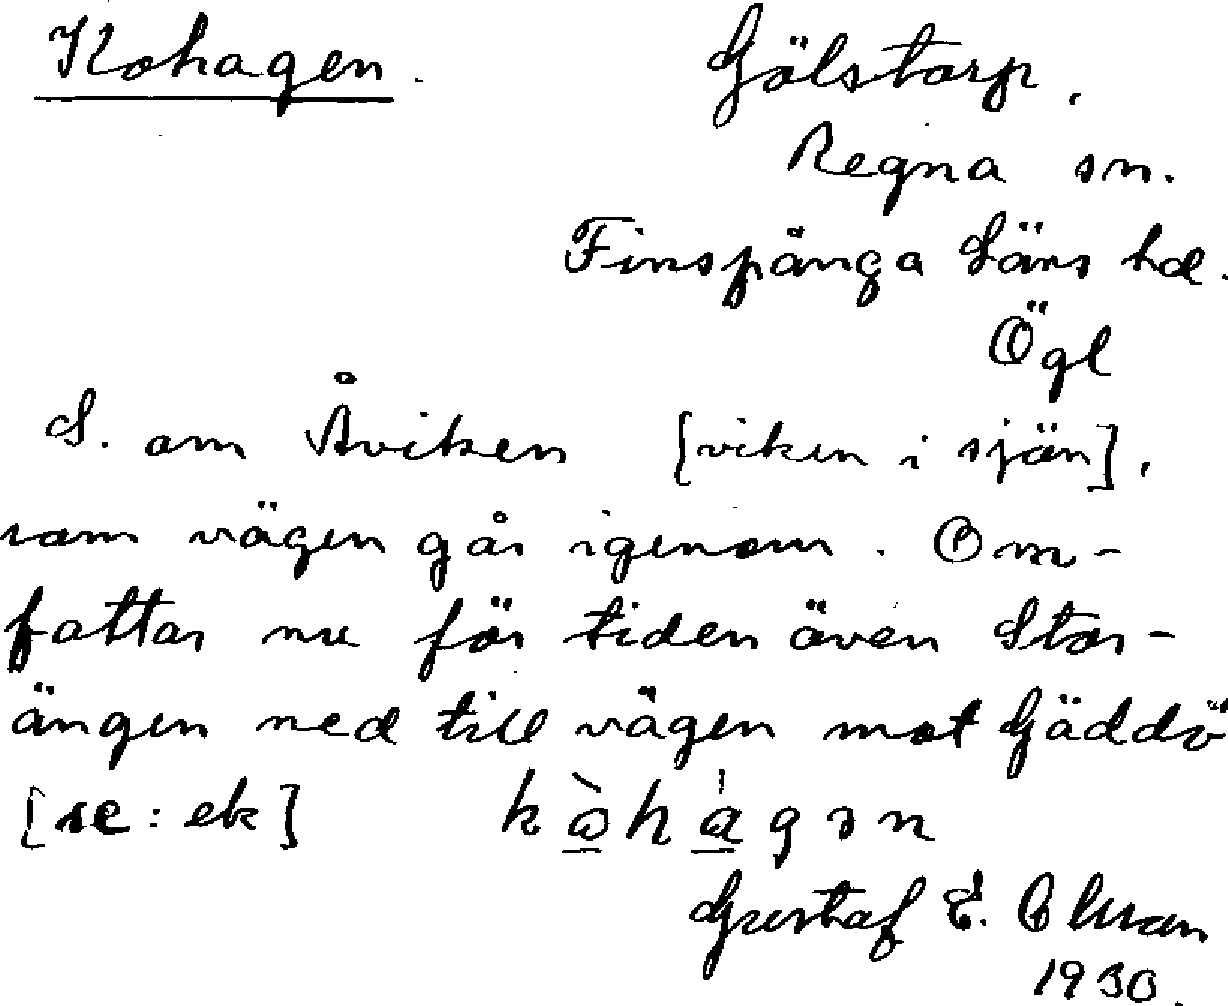 Kohagen.
Gölstorp,
Regna sn.
Finspånga läns hd.
Ögl
S. om Åviken [viken i sjön],
som vägen går igenom. Om-
fattar nu för tiden även Stor-
ängen ned till vägen mot Gäddö
[se: ek] kòhágən
Gustaf E. Olson
1930.